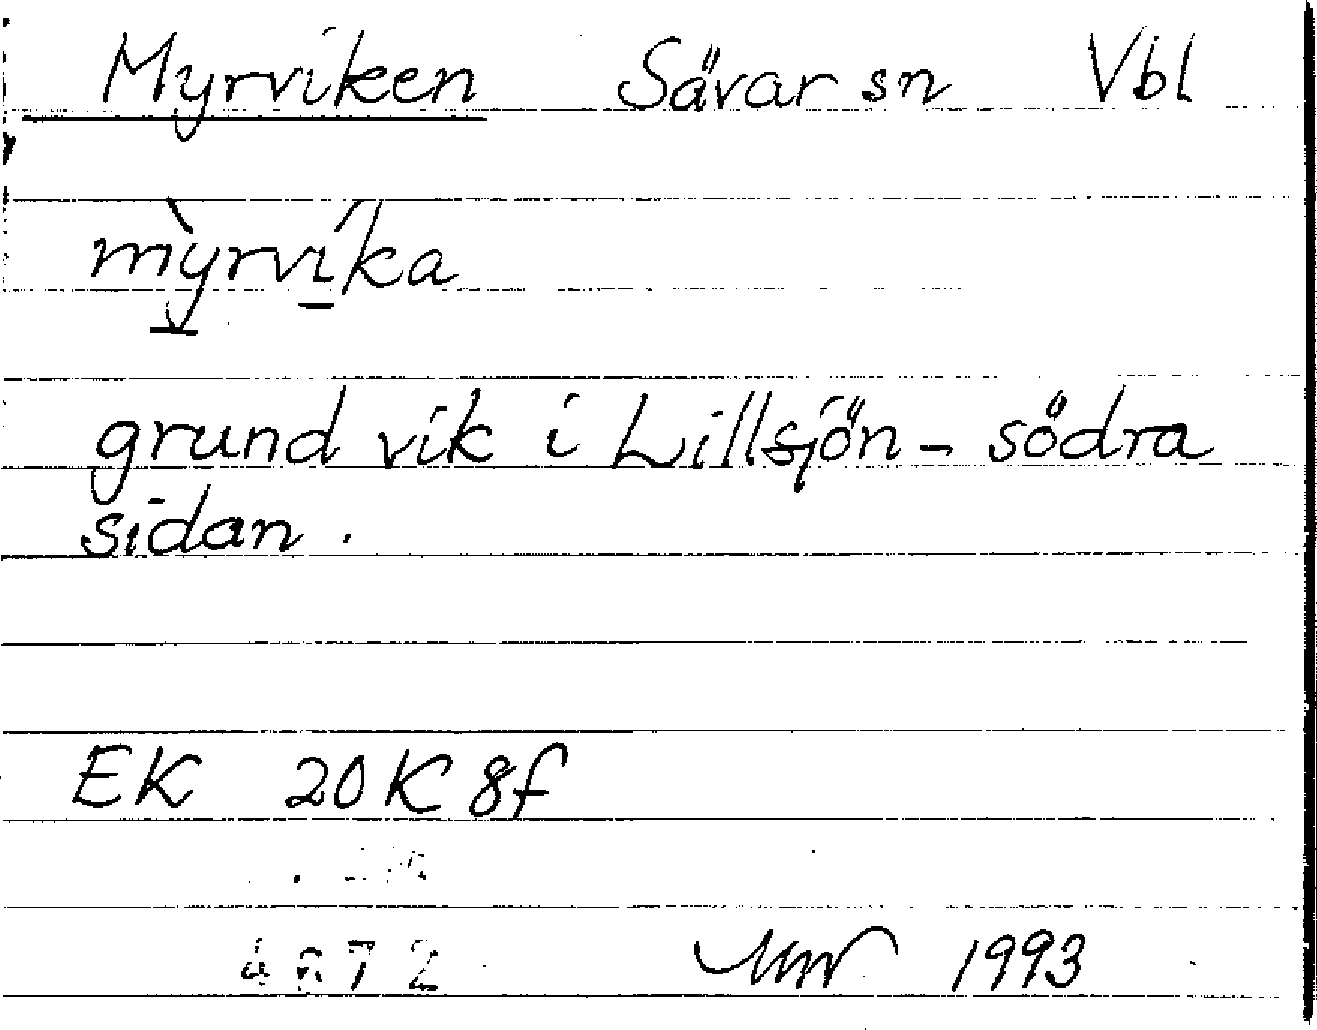 Myrviken Sävar sn Vbl
mỳrvíka
grund vik i Lillsjön - södra
sidan.
EK 20K 8f
1993